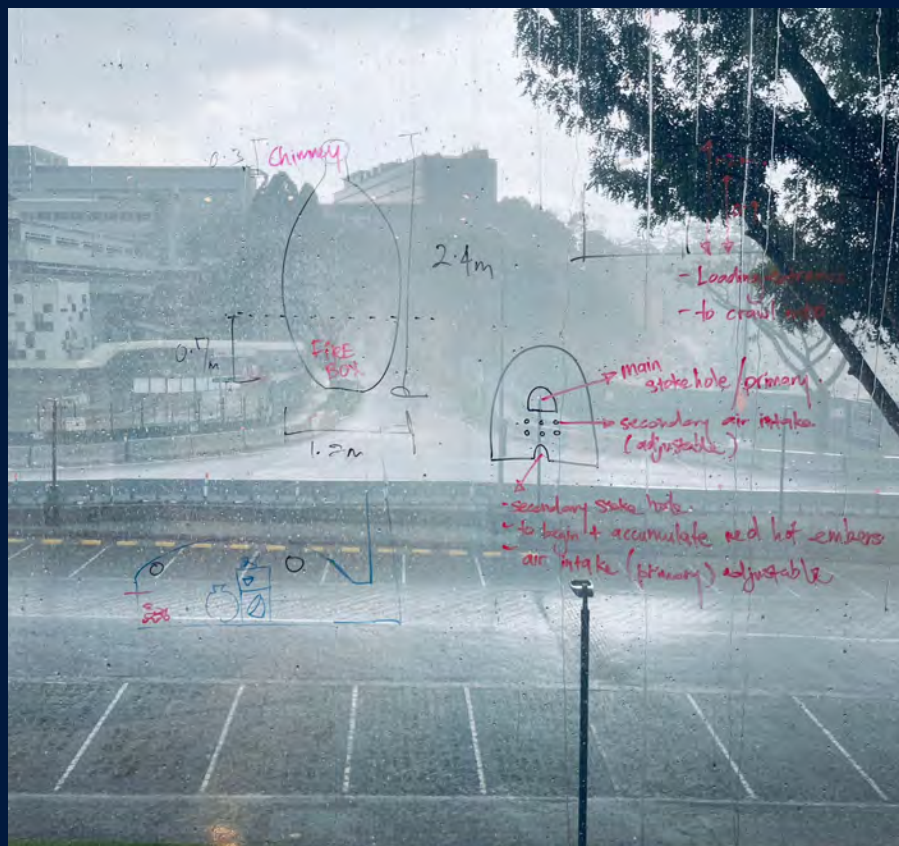 0.3
Chimney
2.4m
- Loading entrance
- to crawl into
0.7
m
FIRE
BOX
1.2m
main
stoke hole/primary.
secondary air intake
(adjustable)
- secondary stoke hole.
- to begin + accumulate red hot embers
- air intake (primary) adjustable